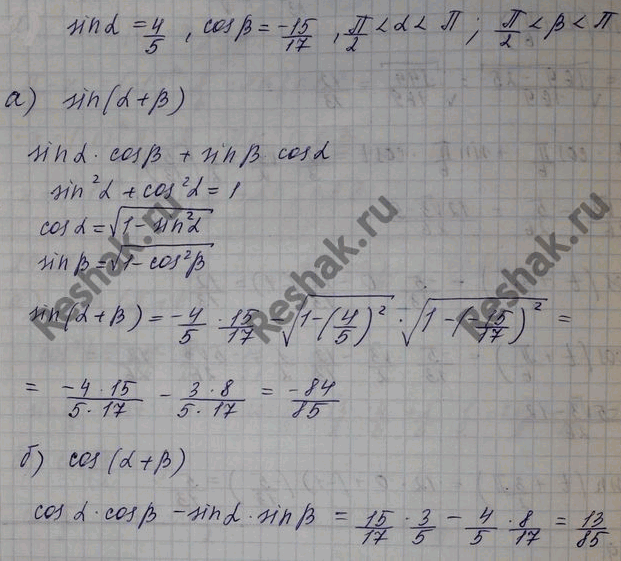 sinα = 4/5 , cosβ = -15/17 , π/2 < α < π ; π/2 < β < π
а) sin(α+β)
sinα · cosβ + sinβ cosα
sin²α + cos²α = 1
cosα = √(1 - sin²α)
sinβ = √(1 - cos²β)
sin(α+β) = -4/5 · 15/17 - √(1-(4/5)²) · √(1-(-15/17)²) =
= -4·15/5·17 - 3·8/5·17 = -84/85
б) cos(α+β)
cosα · cosβ - sinα · sinβ = 15/17 · 3/5 - 4/5 · 8/17 = 13/85
Reshak.ru
Reshak.ru
Reshak.ru